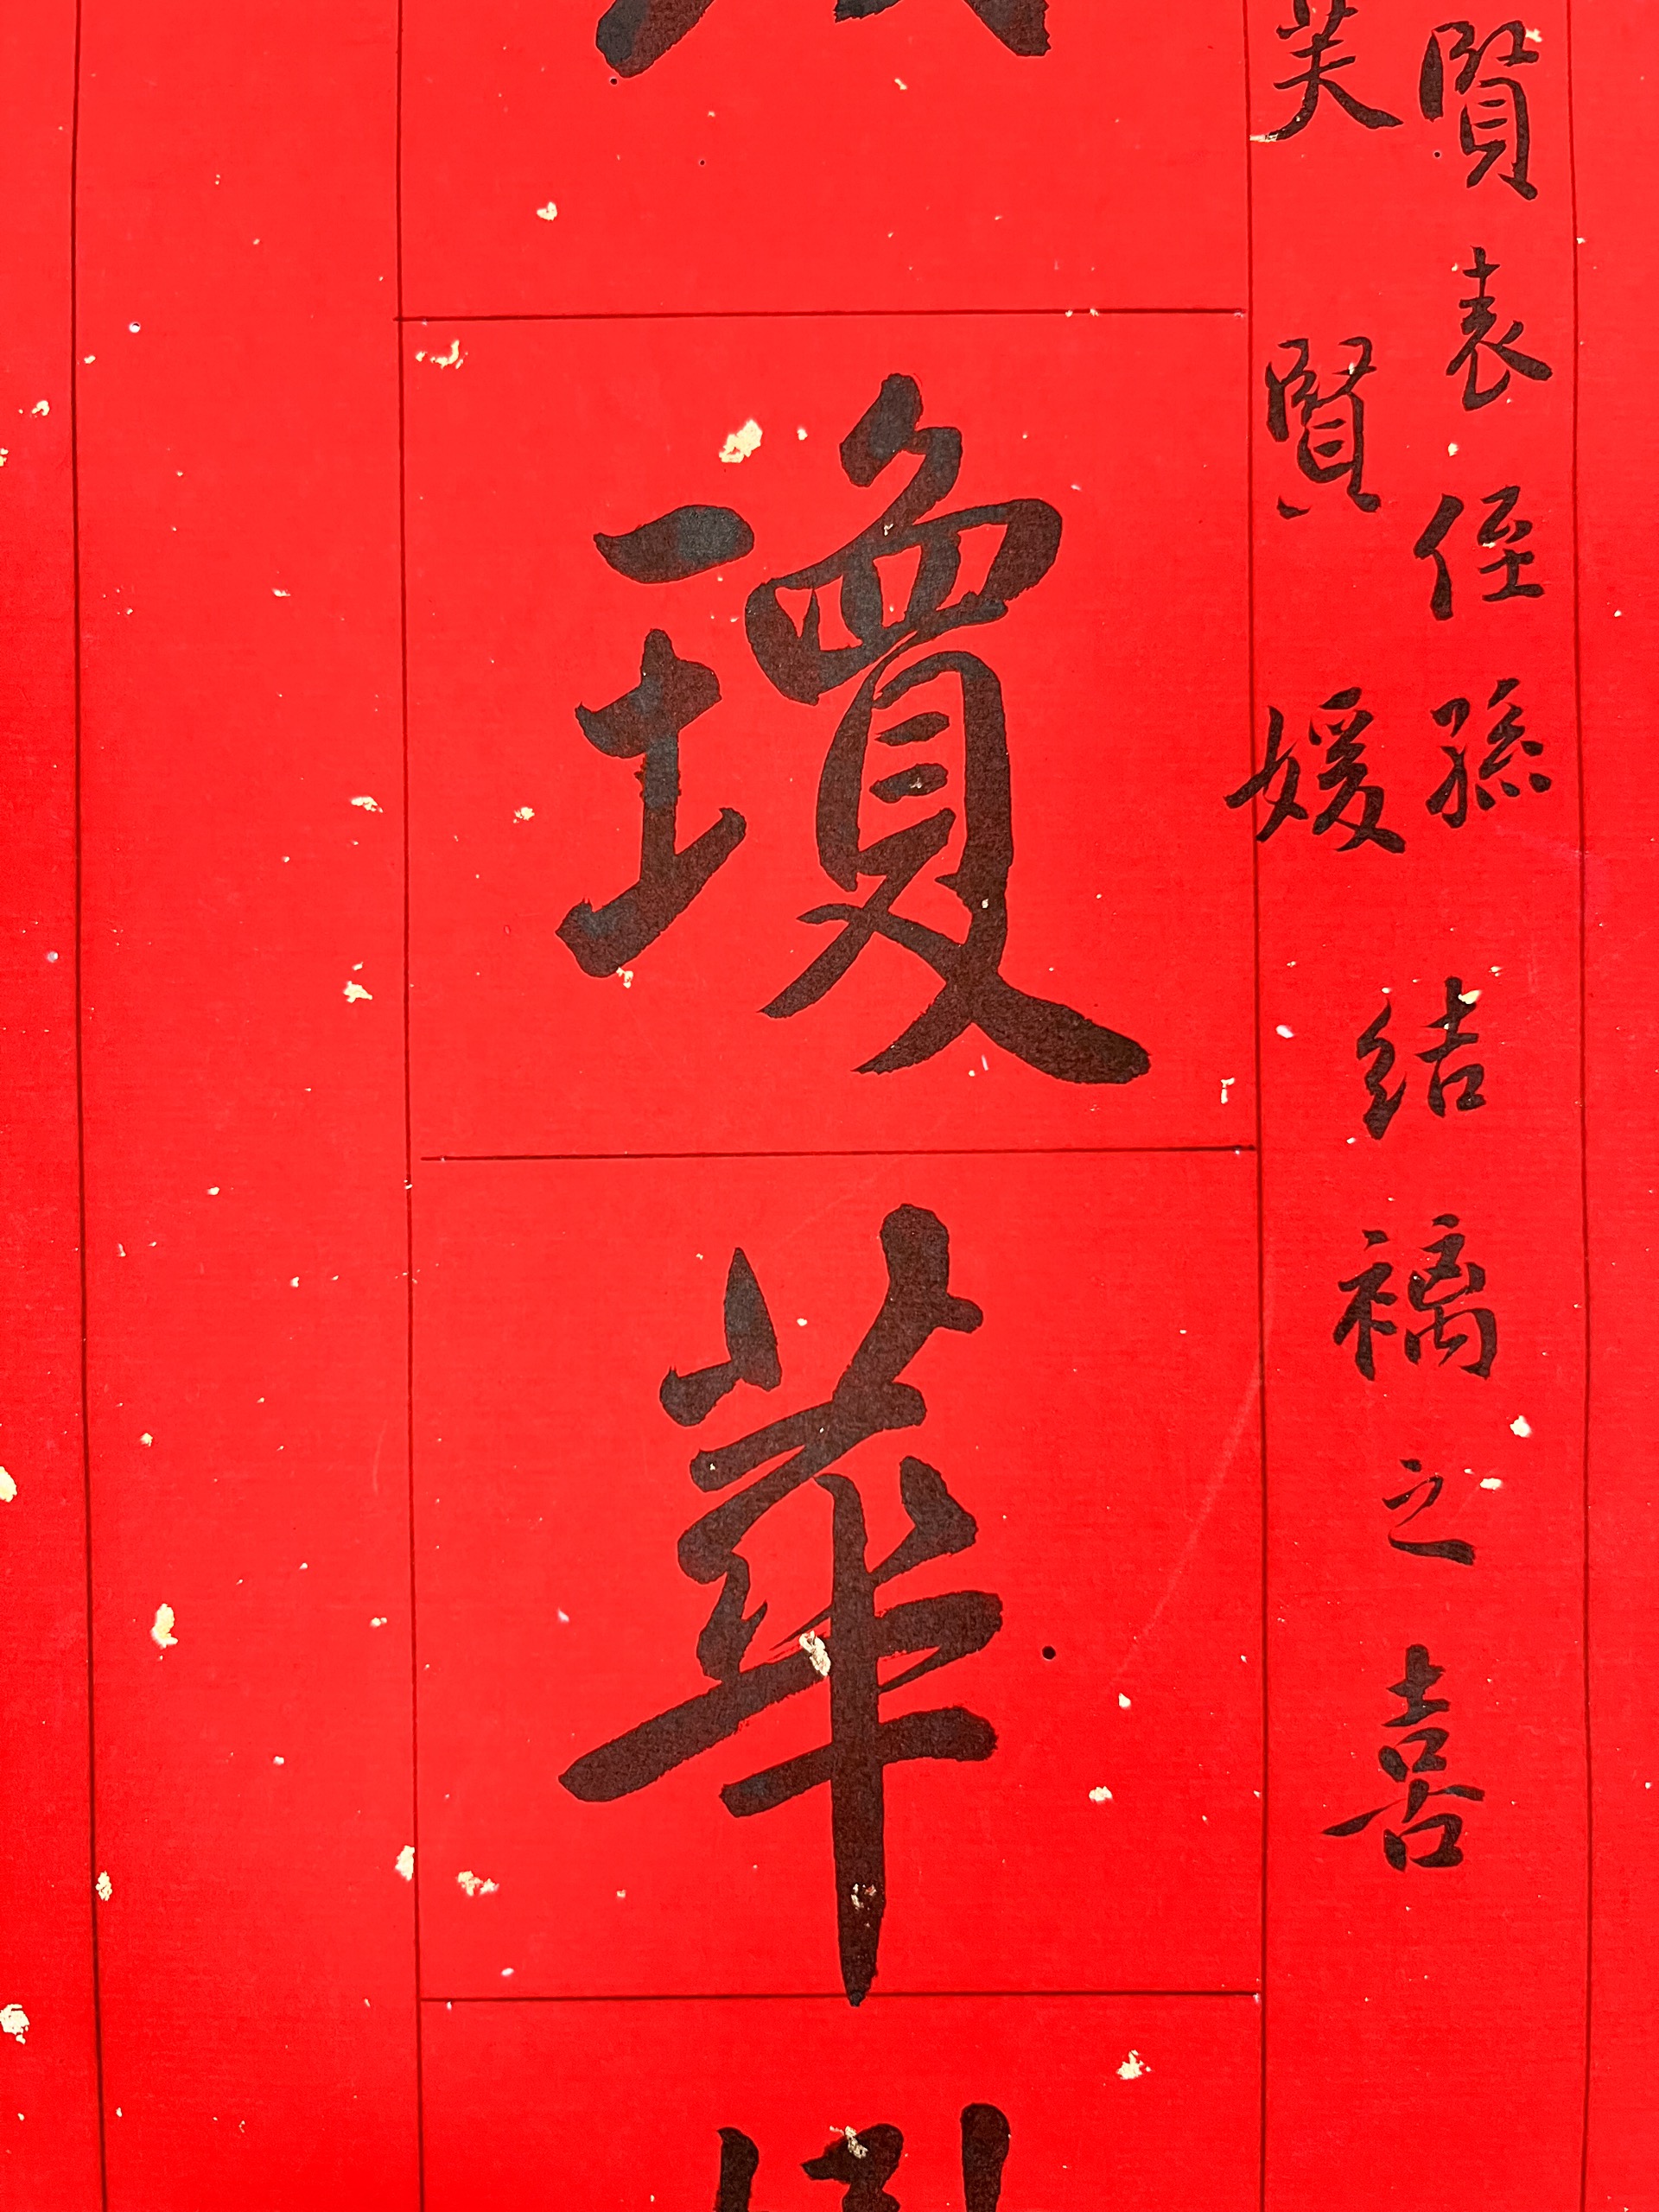 賢表侄孫
芙賢媛
結褵之喜
瓊華